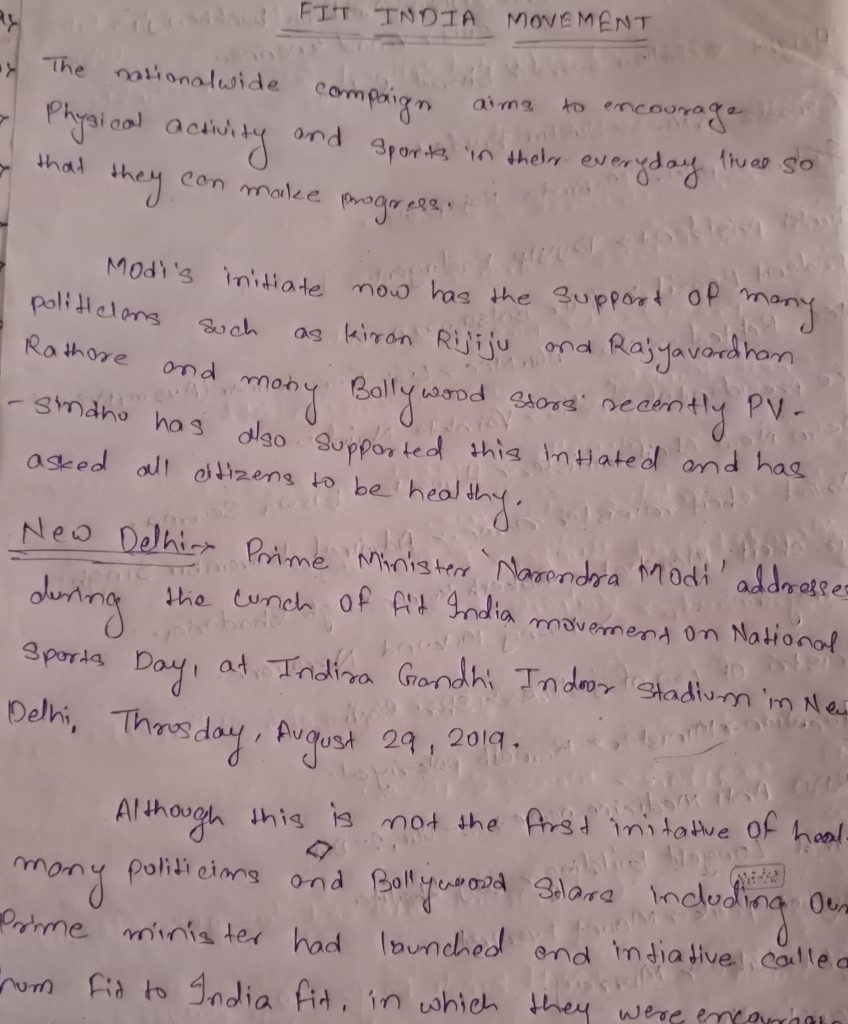 FIT INDIA MOVEMENT
The nationalwide campaign aims to encourage
Physical activity and sports in their everyday lives so
that they can make progress.
Modi's initiate now has the support of many
politicians such as kiran Rijiju and Rajyavardhan
Rathore and many Bollywood stars recently PV-
-sindhu has also supported this intiated and has
asked all citizens to be healthy.
New Delhi→ Prime Minister 'Narendra Modi' addresses
during the lunch of fit India movement on National
Sports Day, at Indira Gandhi Indoor Stadium in New
Delhi, Throsday, August 29, 2019.
Although this is not the first initative of heal
many politicians and Bollywood stars including our
Prime minister had launched and intiative called
hum fit to India fit, in which they were